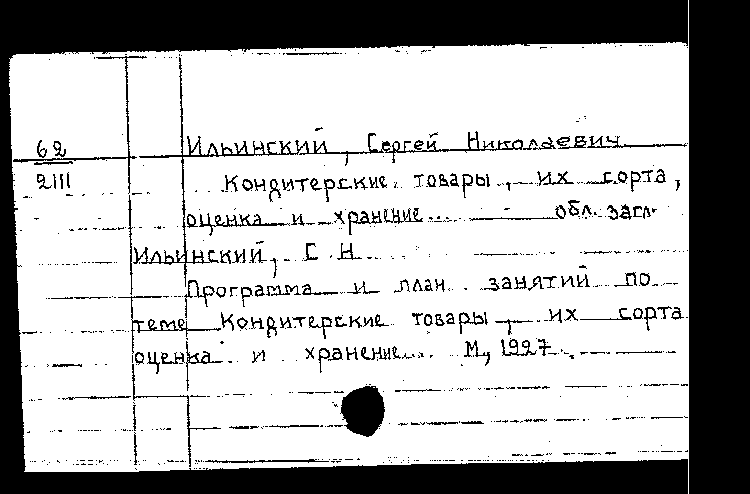 62
2111
Ильинский, Сергей Николаевич
Кондитерские товары, их сорта,
оценка и хранение... обл. загл.
Ильинский, С Н
Программа и план занятий по
теме Кондитерские товары, их сорта
оценка и хранение... М., 1927.